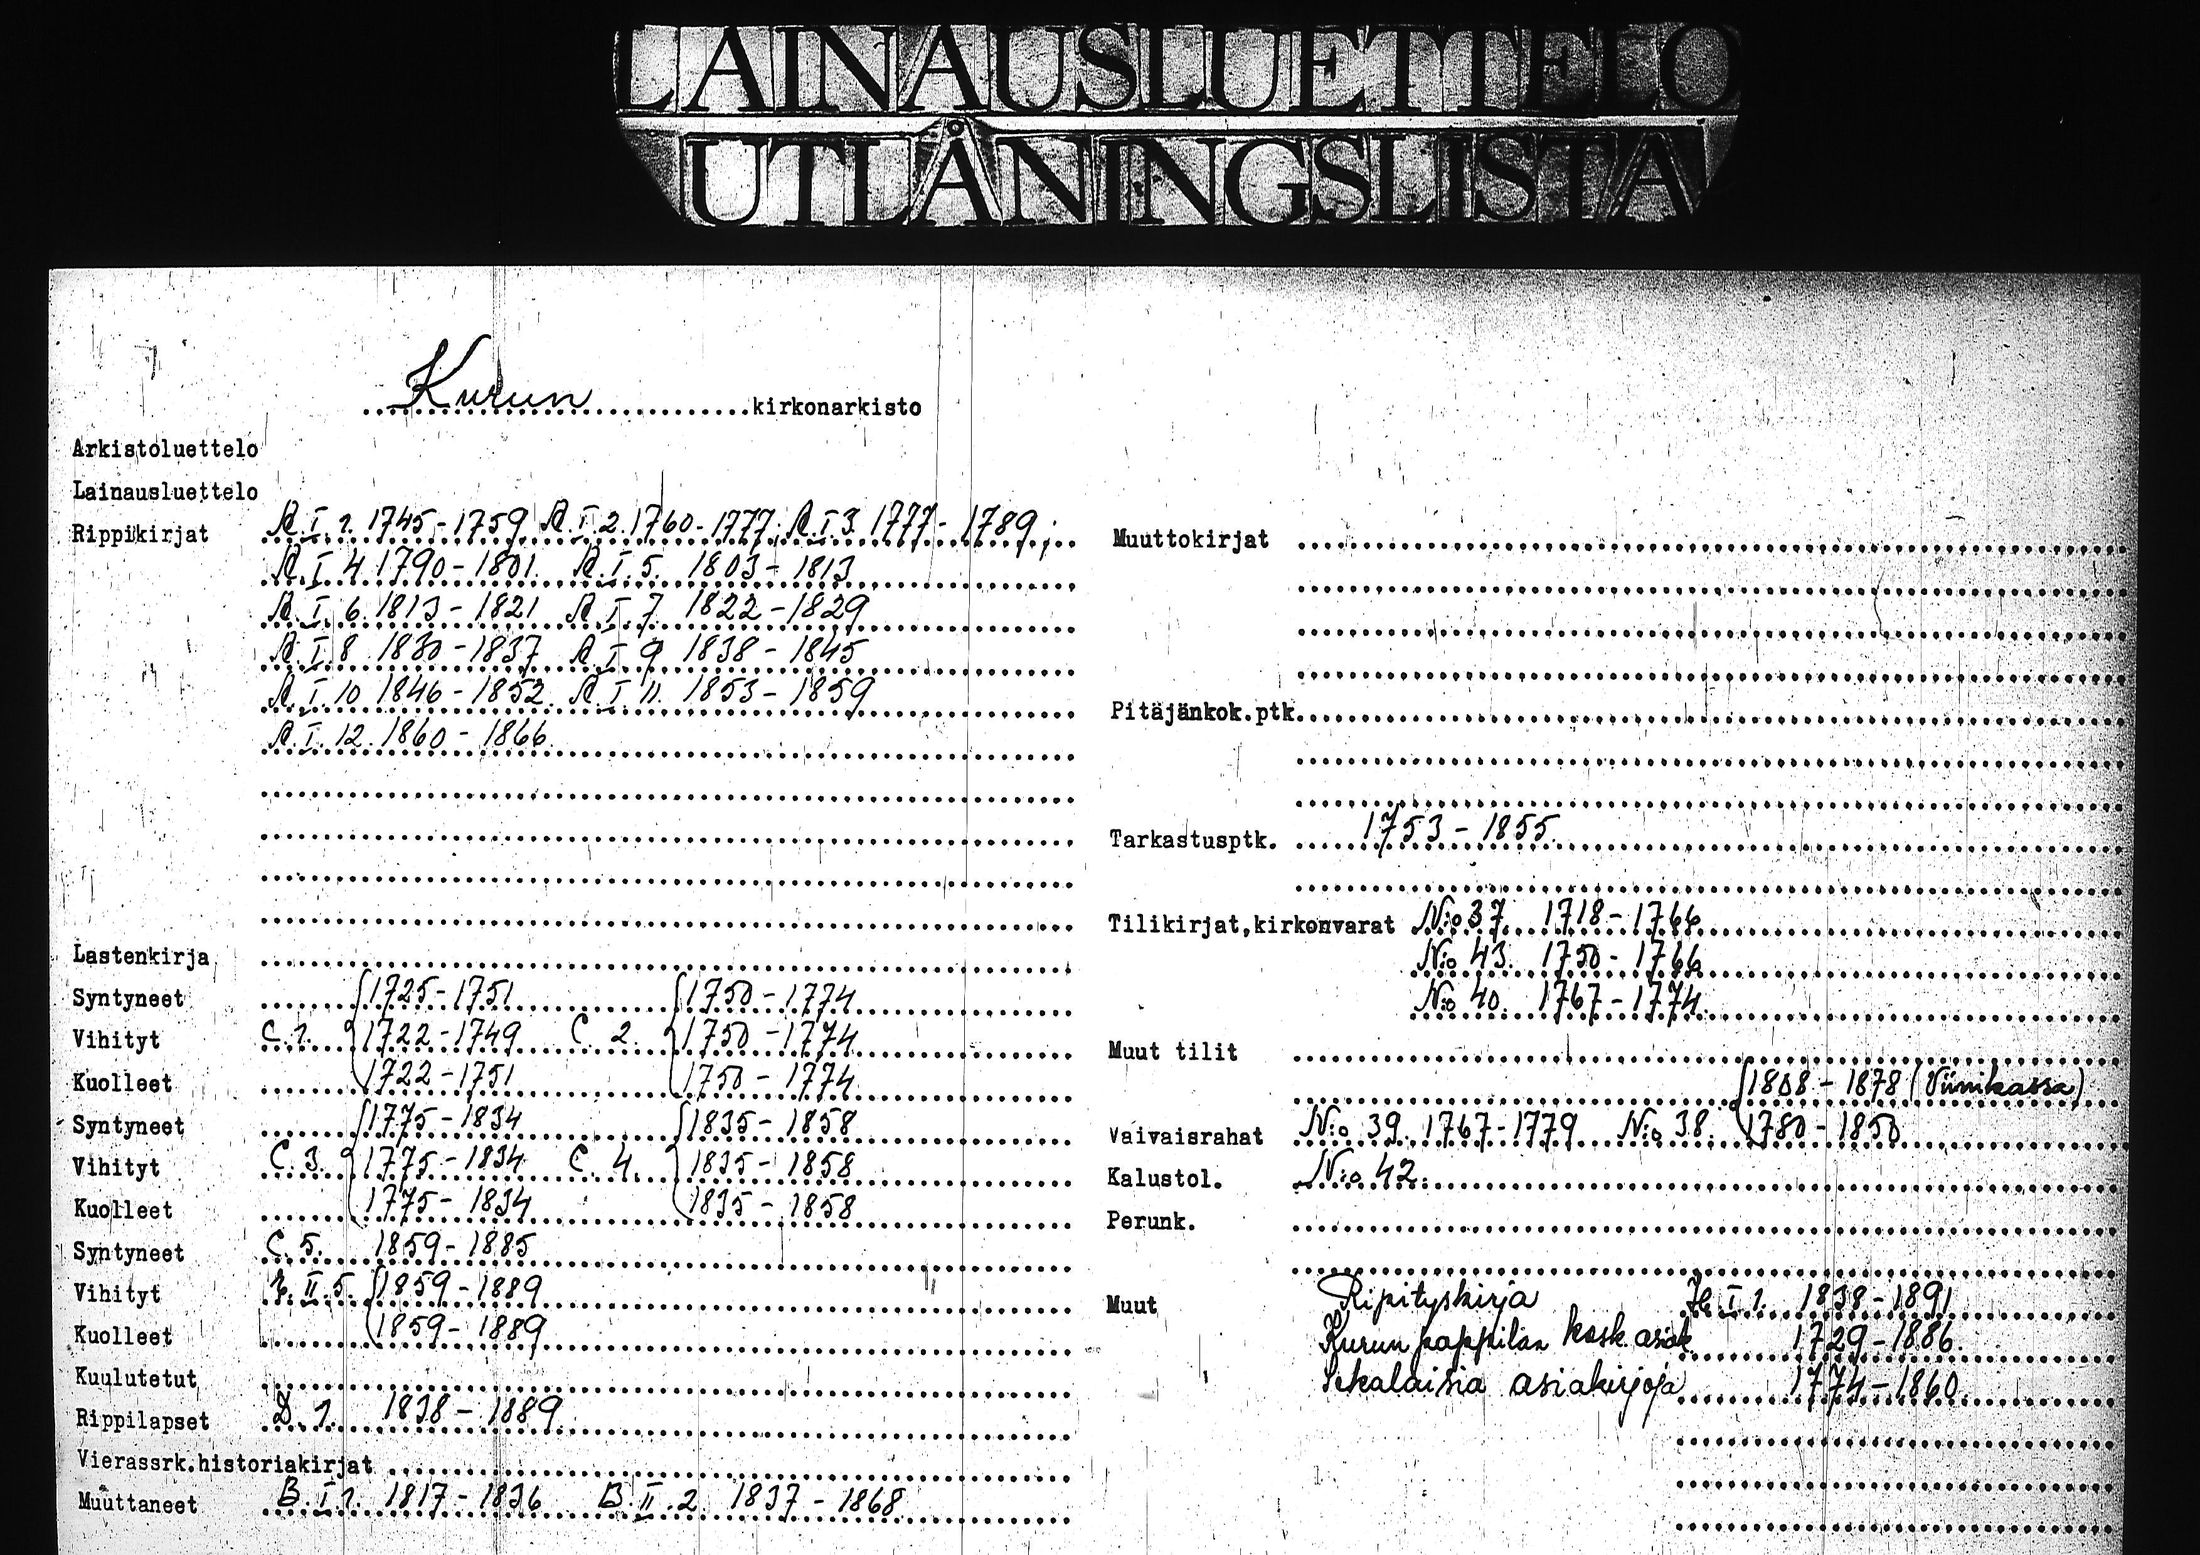 LAINAUSLUETTELO
UTLÅNINGSLISTA
Kurun kirkonarkisto
Arkistoluettelo
Lainausluettelo
Rippikirjat A.I.1. 1745-1759 A.I.2. 1760-1777; A.I.3. 1777-1789;
A.I.4 1790-1801. A.I.5. 1803-1813
A.I.6. 1813-1821 A.I.7. 1822-1829
A.I.8 1830-1837 A.I.9 1838-1845
A.I.10 1846-1852. A.I.11. 1853-1859
A.I.12. 1860-1866.
Lastenkirja
Syntyneet 1725-1751 1750-1774
Vihityt C.1. 1722-1749 C.2. 1750-1774
Kuolleet 1722-1751 1750-1774
Syntyneet 1775-1834 1835-1858
Vihityt C.3. 1775-1834 C.4. 1835-1858
Kuolleet 1775-1834 1835-1858
Syntyneet C.5. 1859-1885
Vihityt II.5. 1859-1889
Kuolleet 1859-1889
Kuulutetut
Rippilapset D.1. 1838-1889
Vierassrk.historiakirjat
Muuttaneet B.I.1. 1817-1836 B.II.2 1837-1868
Muuttokirjat
Pitäjänkok.ptk.
Tarkastusptk. 1753-1855.
Tilikirjat,kirkonvarat N:o 37. 1718-1766
N:o 43. 1750-1766
N:o 40. 1767-1774.
Muut tilit
1808-1878 (Viinikassa)
Vaivaisrahat N:o 39. 1767-1779 N:o 38. 1780-1850
Kalustol. N:o 42.
Perunk.
Muut Ripityskirja I.1. 1838-1891
Kurun pappilan kosk. asiak. 1729-1886.
Sekalaisia asiakirjoja 1774-1860.